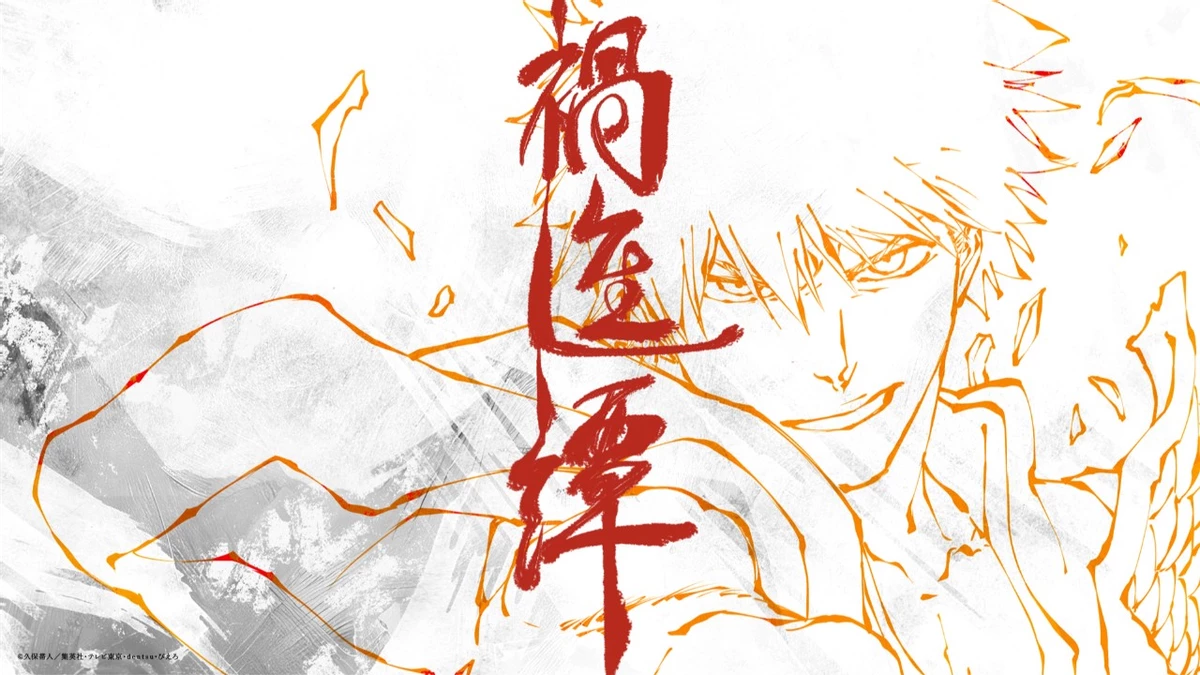 禍進譚
©久保帯人／集英社・テレビ東京・dentsu・ぴえろ